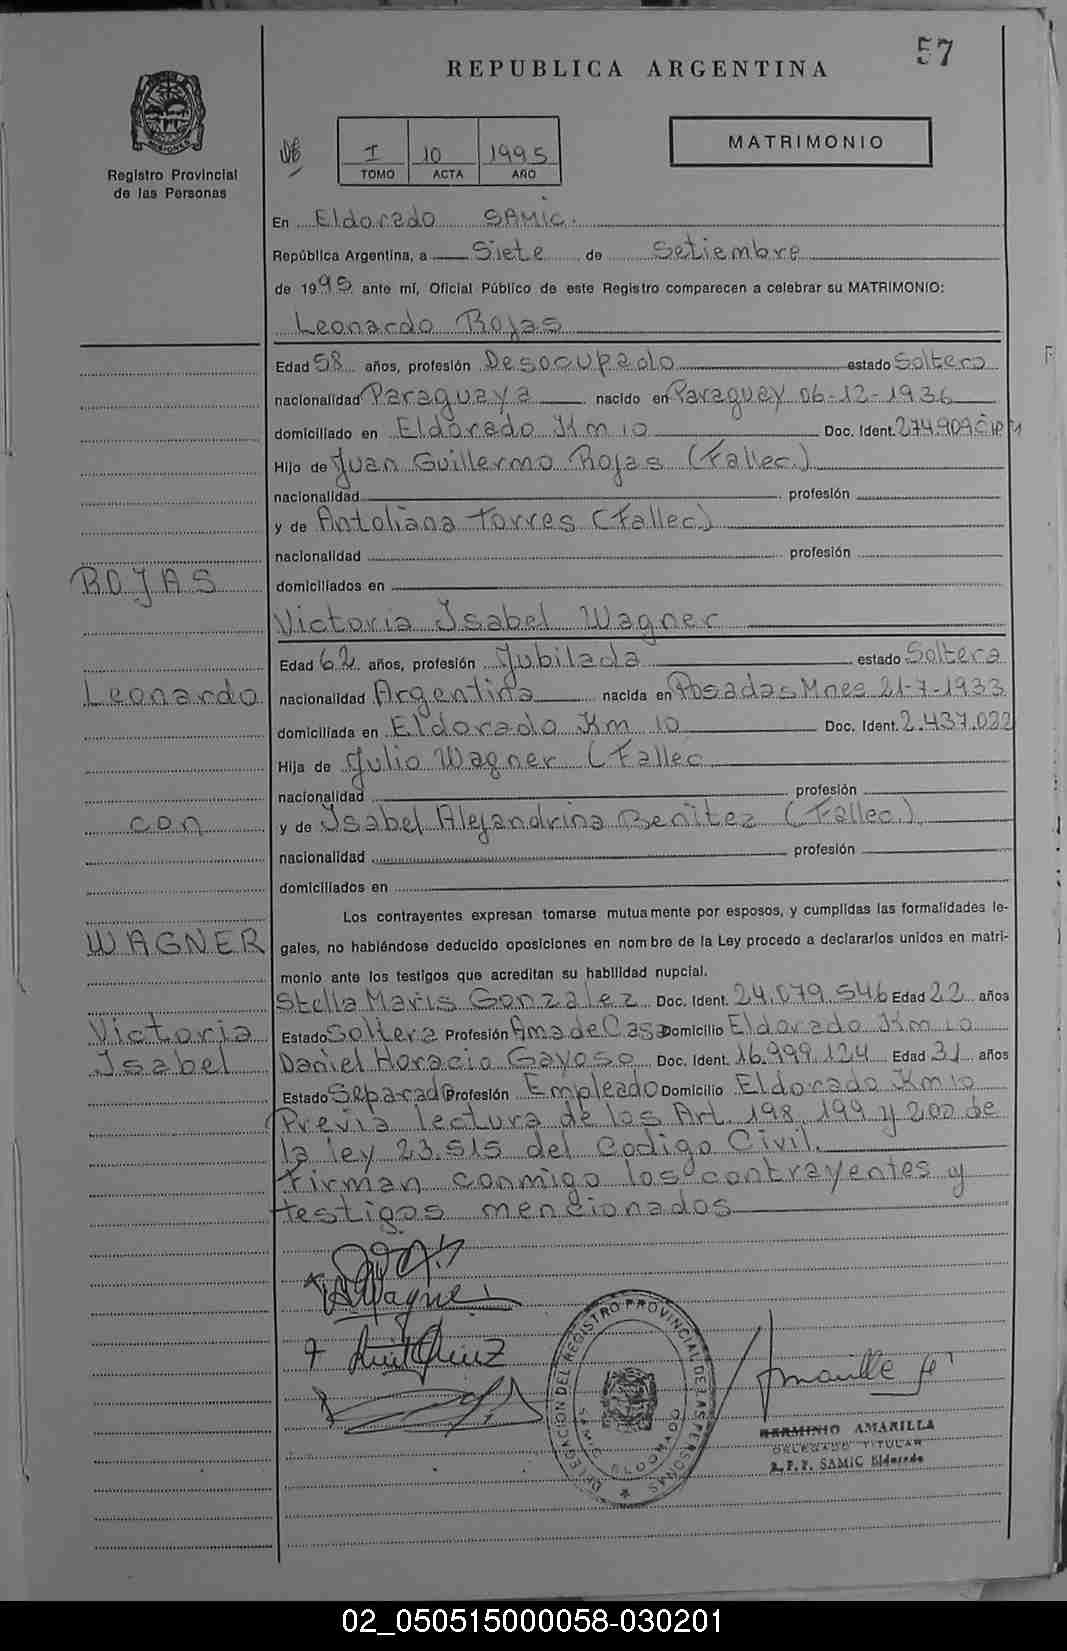 57
REPUBLICA ARGENTINA
MATRIMONIO
Registro Provincial
de las Personas
I 10 1995
TOMO ACTA AÑO
En Eldorado SAMIC.
República Argentina, a Siete de Setiembre
de 1995 ante mí, Oficial Público de este Registro comparecen a celebrar su MATRIMONIO:
Leonardo Rojas
Edad 58 años, profesión Desocupado estado Soltero
nacionalidad Paraguaya nacido en Paraguay 06-12-1936
domiciliado en Eldorado Km 10 Doc. Ident. 274.909
Hijo de Juan Guillermo Rojas (Fallec.)
nacionalidad profesión
y de Antoliana Torres (Fallec)
nacionalidad profesión
domiciliados en
Victoria Isabel Wagner
Edad 62 años, profesión Jubilada estado Soltera
nacionalidad Argentina nacida en Posadas Mnes 21-7-1933
domiciliada en Eldorado Km 10 Doc. Ident. 2.437.022
Hija de Julio Wagner (Fallec
nacionalidad profesión
y de Isabel Alejandrina Benitez (Fallec.)
nacionalidad profesión
domiciliados en
ROJAS
Leonardo
con
WAGNER
Victoria
Isabel
Los contrayentes expresan tomarse mutuamente por esposos, y cumplidas las formalidades le-
gales, no habiéndose deducido oposiciones en nombre de la Ley procedo a declararlos unidos en matri-
monio ante los testigos que acreditan su habilidad nupcial.
Stella Maris Gonzalez Doc. Ident. 24.079.546 Edad 22 años
Estado Soltera Profesión Ama de Casa Domicilio Eldorado Km 10
Daniel Horacio Gayoso Doc. Ident. 16.999.124 Edad 31 años
Estado Separado Profesión Empleado Domicilio Eldorado Km 10
Previa lectura de los Art. 198, 199 y 200 de
la ley 23.515 del Codigo Civil.
Firman conmigo los contrayentes y
testigos mencionados
Wagner
DELEGACION DEL REGISTRO PROVINCIAL DE LAS PERSONAS
HERMINIO AMARILLA
DELEGADO TITULAR
R. P. P. SAMIC Eldorado
02_050515000058-030201